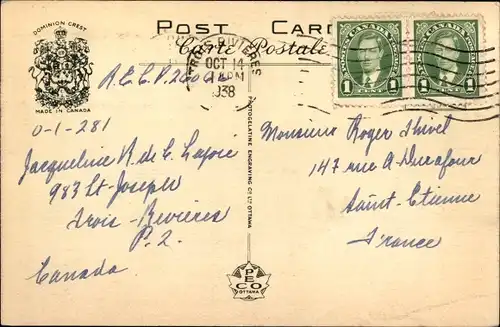 DOMINION CREST
MADE IN CANADA
POST CARD
Carte Postale
TROIS RIVIERES
OCT 14
PM
1938
CANADA
1 1
CANADA
1 1
0-1-281
Jacqueline R. de E. Lajoie
983 St-Joseph
Trois-Rivières
P.2.
Canada
PHOTOGELATINE ENGRAVING CO. LTD. OTTAWA
PECO
OTTAWA
Monsieur Roger Thivel
147 rue A. Durafour
Saint-Etienne
France